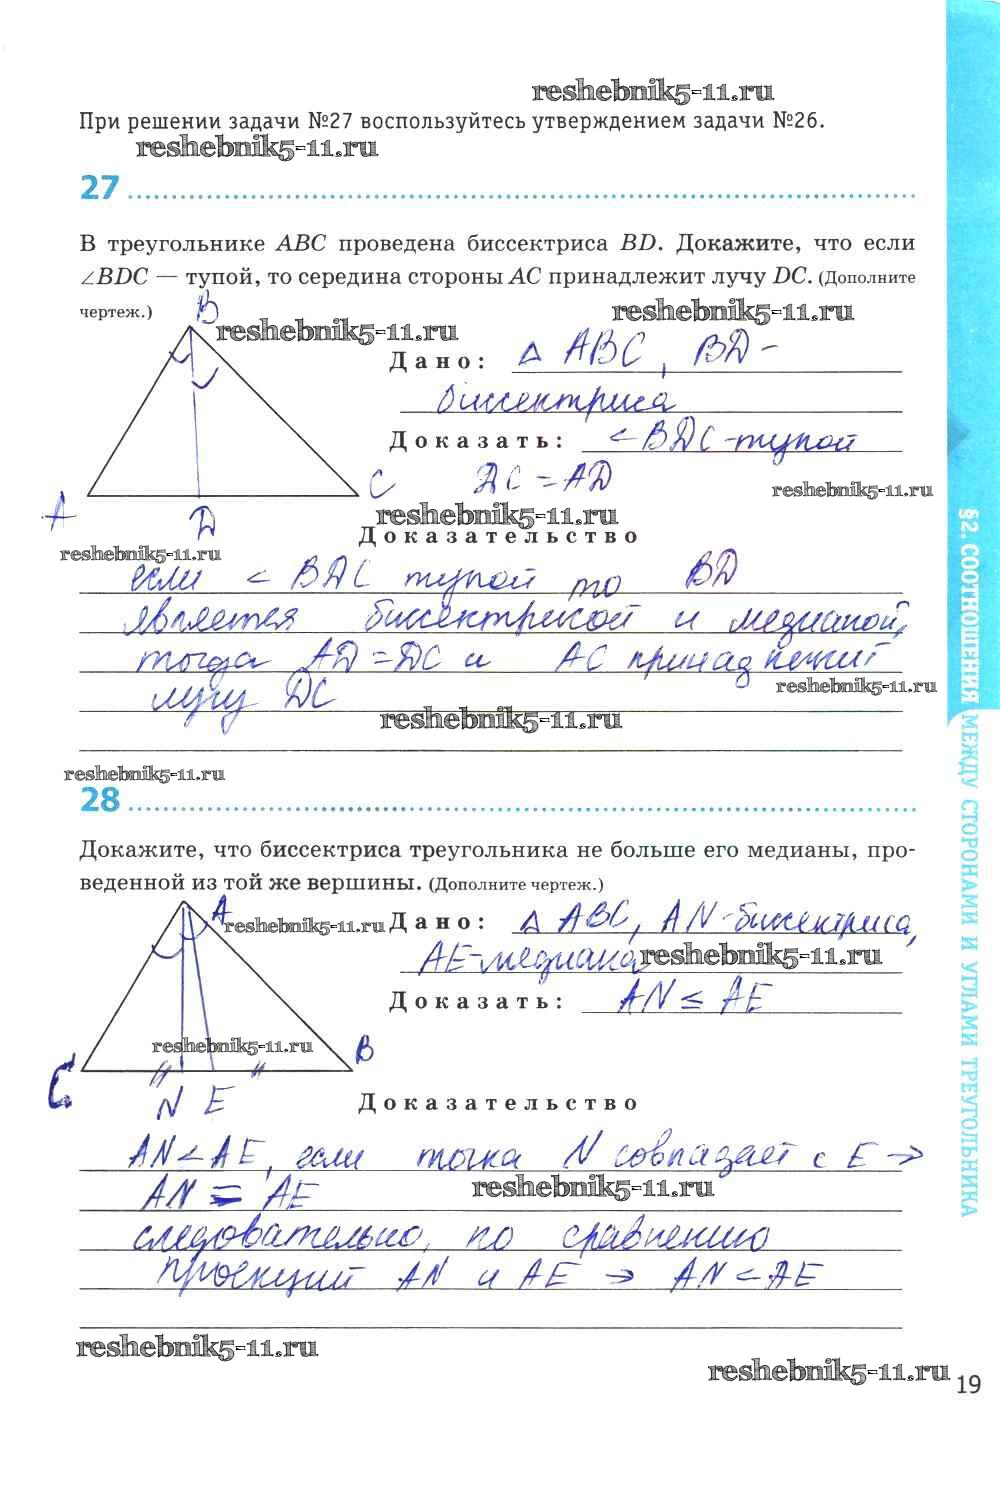 reshebnik5-11.ru
При решении задачи №27 воспользуйтесь утверждением задачи №26.
reshebnik5-11.ru
27
В треугольнике ABC проведена биссектриса BD. Докажите, что если
∠BDC — тупой, то середина стороны AC принадлежит лучу DC. (Дополните
чертеж.)
B
reshebnik5-11.ru
reshebnik5-11.ru
Дано: Δ ABC, BD -
биссектриса
Доказать: < BDC - тупой
A
D
C
DC = AD
reshebnik5-11.ru
reshebnik5-11.ru
reshebnik5-11.ru
Доказательство
если < BDC тупой то BD
является биссектрисой и медианой,
тогда AD = DC и AC принадлежит
лучу DC
reshebnik5-11.ru
reshebnik5-11.ru
reshebnik5-11.ru
28
Докажите, что биссектриса треугольника не больше его медианы, про-
веденной из той же вершины. (Дополните чертеж.)
A
reshebnik5-11.ru
Дано: Δ ABC, AN - биссектриса,
AE - медиана
reshebnik5-11.ru
Доказать: AN ≤ AE
reshebnik5-11.ru
C
B
N E
Доказательство
AN < AE, если точка N совпадает с E →
AN = AE
reshebnik5-11.ru
следовательно, по сравнению
проекций AN и AE → AN < AE
reshebnik5-11.ru
reshebnik5-11.ru
19
§2. СООТНОШЕНИЯ МЕЖДУ СТОРОНАМИ И УГЛАМИ ТРЕУГОЛЬНИКА